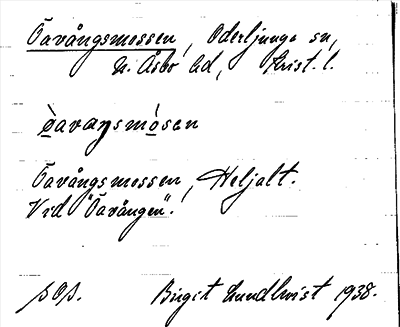 Öavångsmossen, Oderljunga sn,
N. Åsbo hd, Krist. l.
òavaŋsmósen
Öavångsmossen, Heljalt.
Vid "Öavången".
sOs. Birgit Lundkvist 1938.